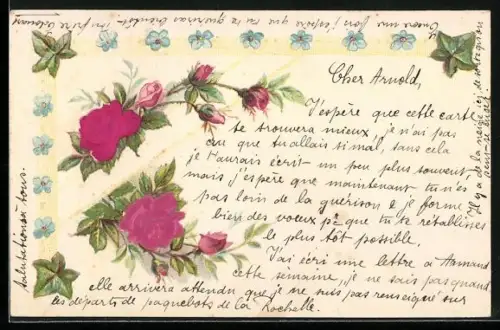 Cher Arnold,
J'espère que cette carte
te trouvera mieux, je n'ai pas
cru que tu allais si mal, sans cela
je t'aurais écrit un peu plus souvent
mais j'espère que maintenant tu n'es
pas loin de la guérison e je forme
bien des voeux pr que tu te rétablisses
le plus tôt possible.
J'ai écri une lettre a Armand
cette semaine, je ne sais pas quand
elle arrivera attendu que je ne suis pas renseigné sur
les départs de paquebots de la Rochelle.
Salutations à tous.
Encore une fois j'espère que tu te guériras bientôt
Il y a de la neige ici de sorte qu'on